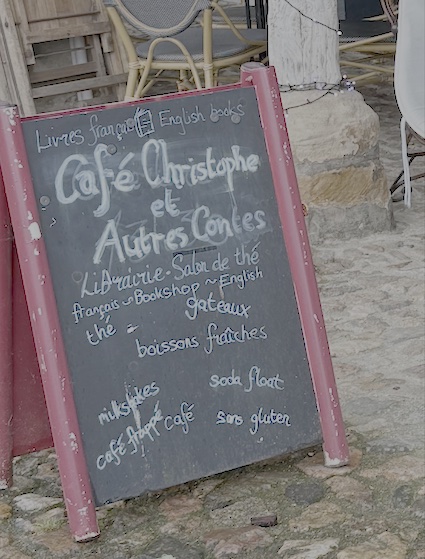 Livres français English books
Café Christophe
et
Autres Contes
Librairie - Salon de thé
français ~ Bookshop ~ English
thé - gateaux
boissons fraîches
milkshakes soda float
café frappé café sans gluten